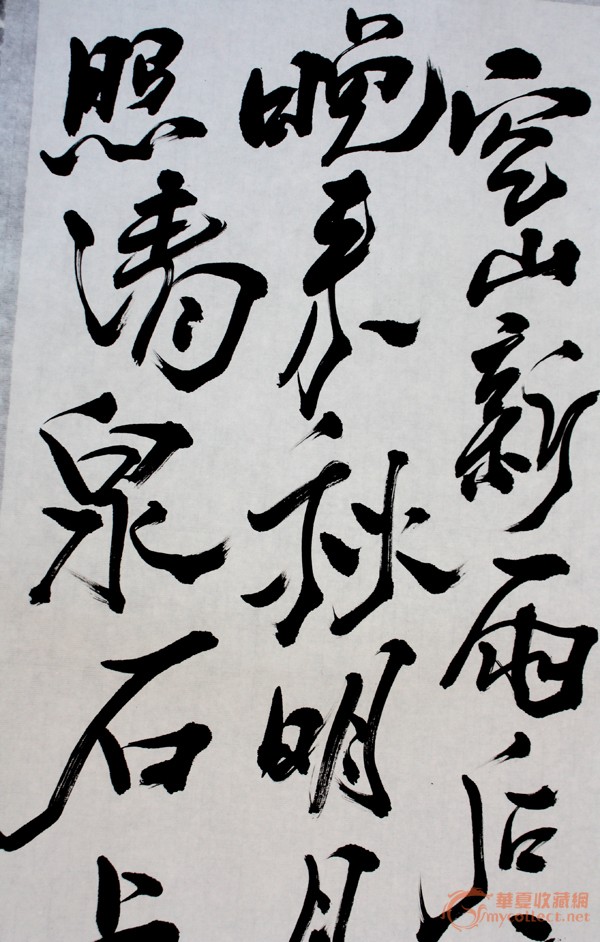 空山新雨后
晚来秋明月
照清泉石上
華夏收藏網
mycollect.net